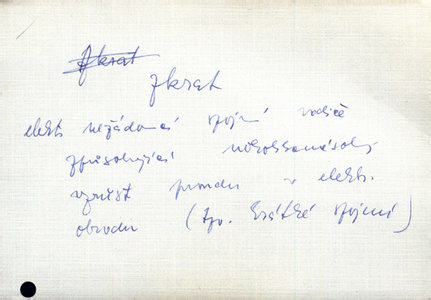 zkrat
zkrat
elekt. nežádoucí spojní vodičů
způsobující několikanásobný
vzrůst proudu v elekt.
obvodu (tzv. krátké spojení)